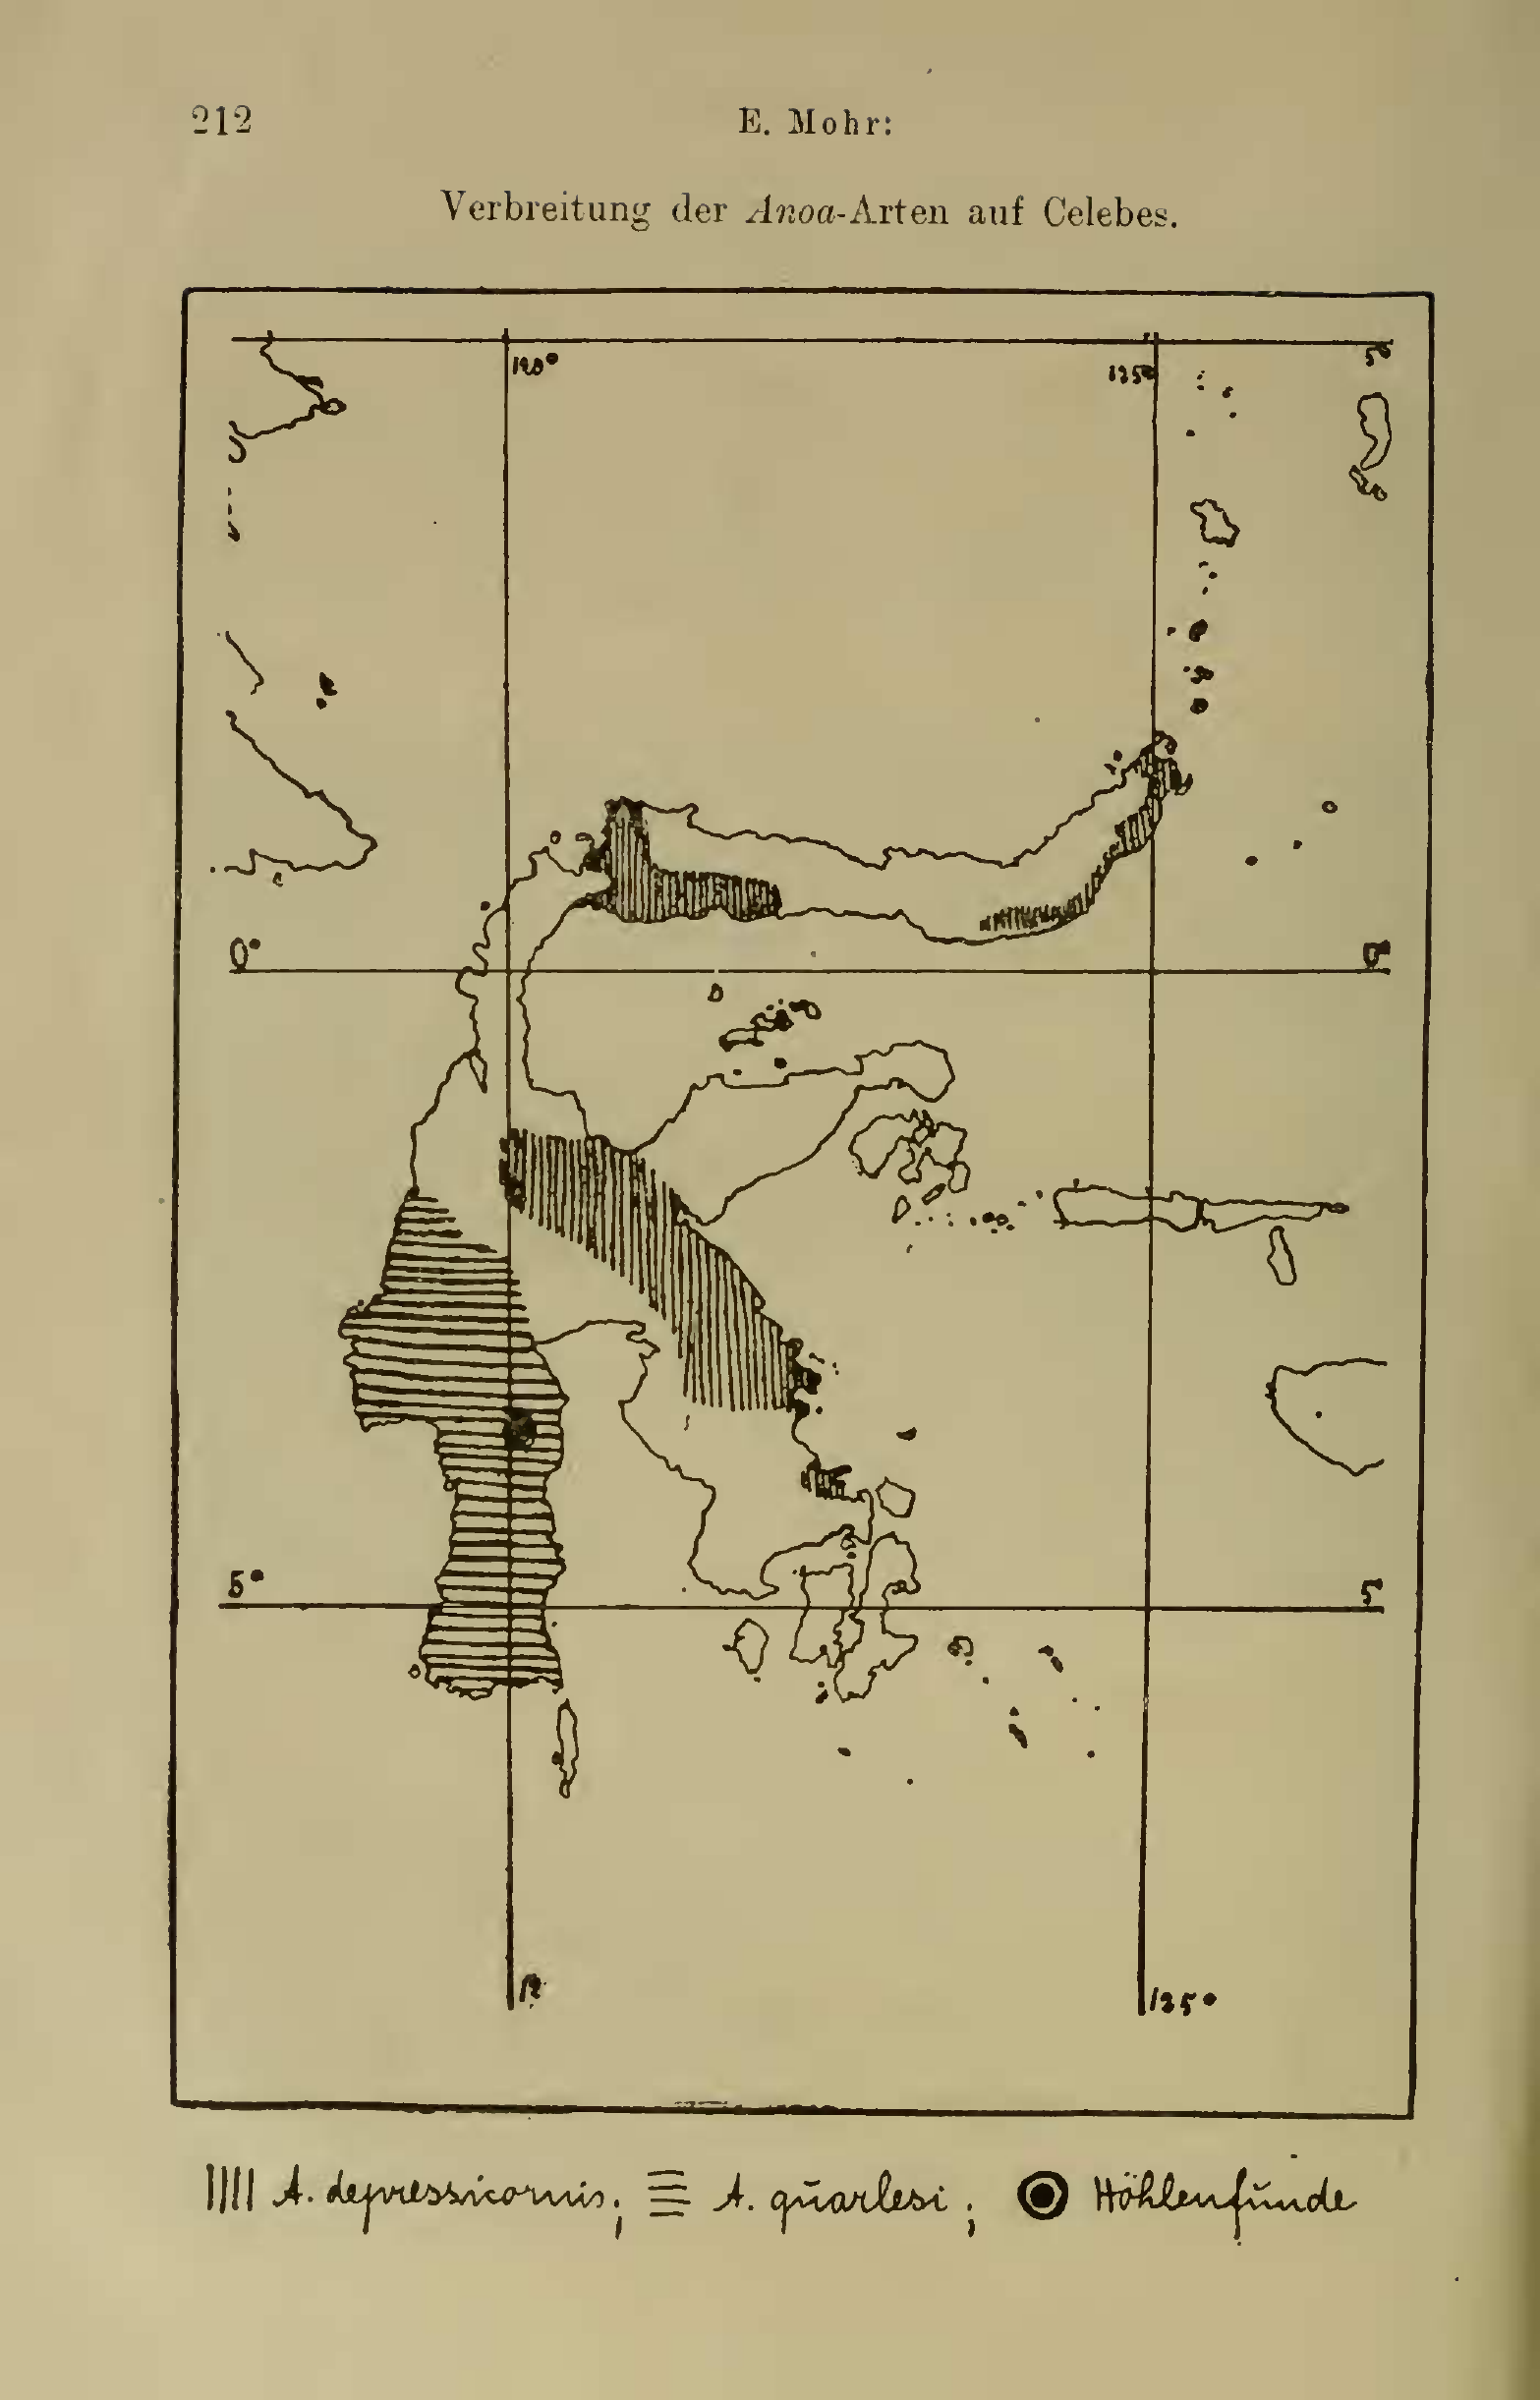 212
E. Mohr:
Verbreitung der Anoa-Arten auf Celebes.
120° 125° 5°
0° 0°
5° 5°
12 125°
A. depressicornis; A. quarlesi; Höhlenfunde